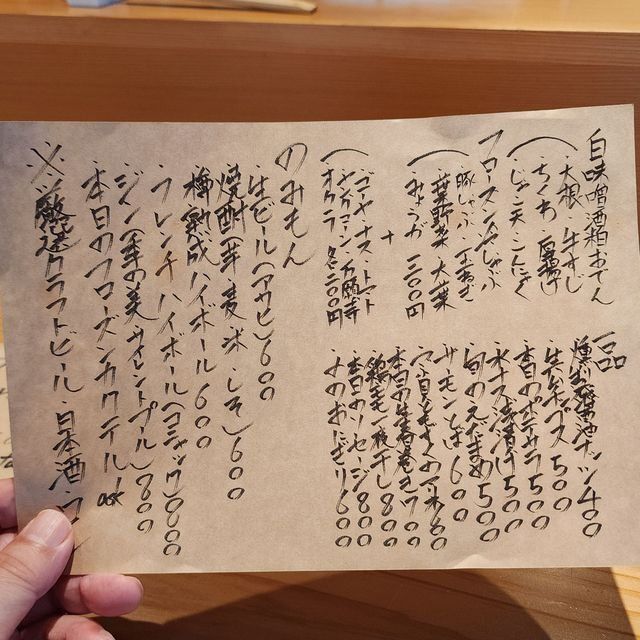 白味噌酒粕おでん
大根・牛すじ
ちくわ・厚揚げ
じゃこ天・こんにゃく
フローズンしゃぶしゃぶ
豚しゃぶ
葉野菜 大葉
みょうが 一二〇〇円
+
ゴーヤ・ナス・トマト
ヤングコーン・万願寺
オクラ 各二〇〇円
一品
燻製醤油ナッツ 400
生ハム 500
本日のポテサラ 500
水ナス浅漬け 500
旬のえだまめ 500
サーモンとば 600
本日の生春巻き 700
鶏せせり一夜干し 800
本日のソーセージ 800
のおにぎり 600
のみもん
生ビール(アサヒ) 600
焼酎(芋 麦 米 しそ) 600
樽熟成ハイボール 600
フレンチハイボール(コニャック) 800
ジン(季の美 サイレントプール) 800
本日のフローズンカクテル ask
※厳選クラフトビール・日本酒・ワ